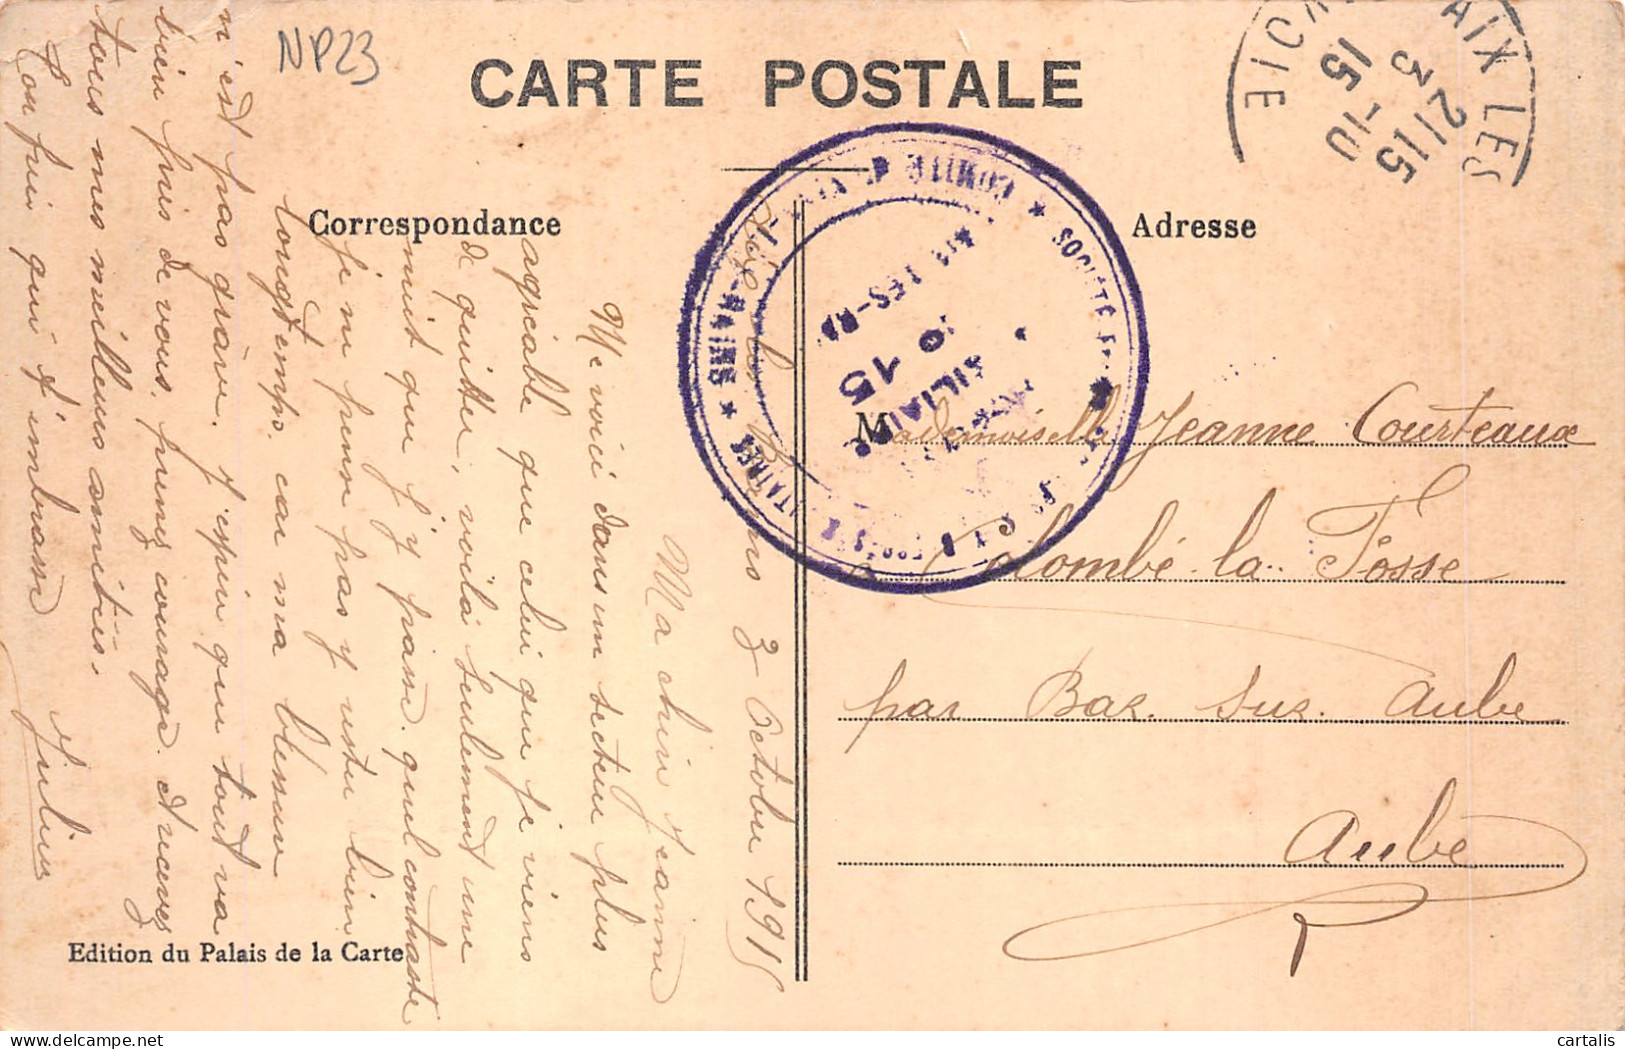 NP23
CARTE POSTALE
AIX LES
3
2115
15-10
OIE
Correspondance
Adresse
les Bains 3 Octobre 1915
Ma chère Jeanne
Me voici dans un secteur plus
agréable que celui que je viens
de quitter, voilà seulement une
nuit que j'y passe. quel contraste
je ne pense pas y rester bien
longtemps. car ma blessure
n'est pas grave. J'espère que tout va
bien près de vous, prenez courage. et recevez
tous mes meilleures amitiés.
Ton qui t'embrasse
Julien
SOCIÉTÉ
COMITÉ
-BAINS
LES-BA
15
Mademoiselle Jeanne Courteaux
à Colombé-la-Fosse
par Bar. sur. Aube
Aube
Edition du Palais de la Carte
cartalis
delcampe.net